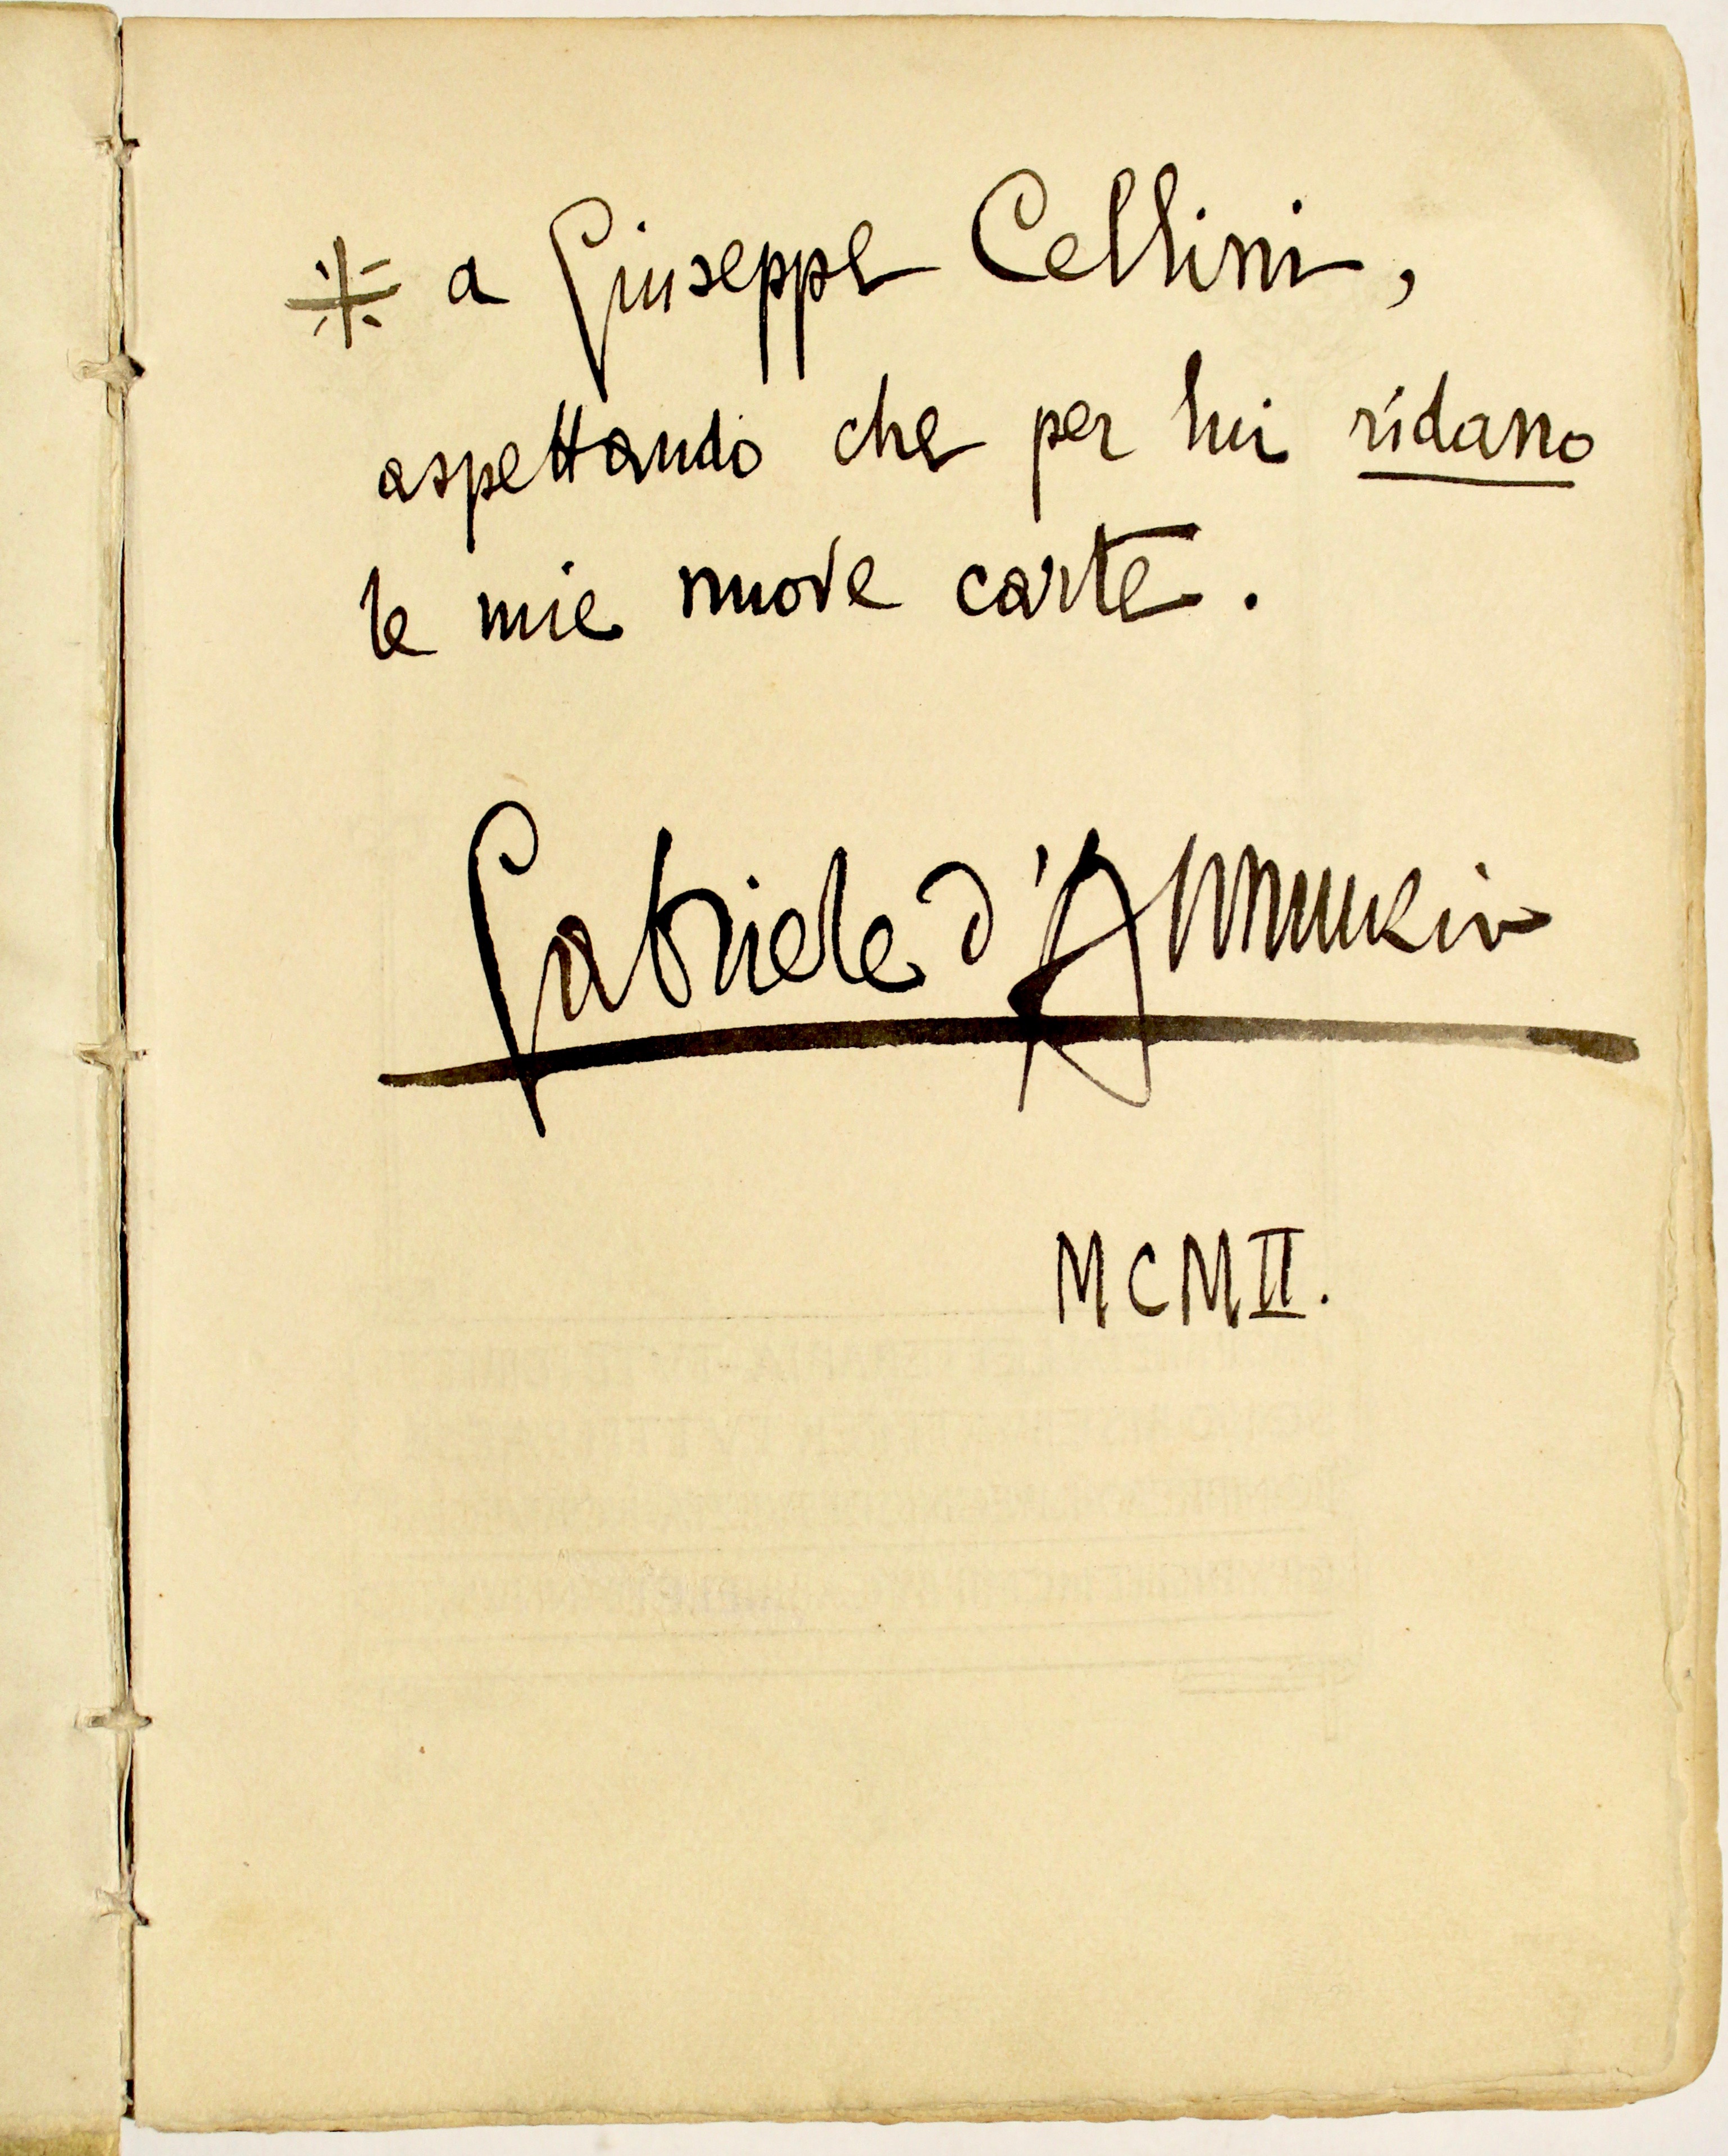 a Giuseppe Cellini,
aspettando che per lui ridano
le mie nuove carte.
Gabriele d'Annunzio
MCMII.